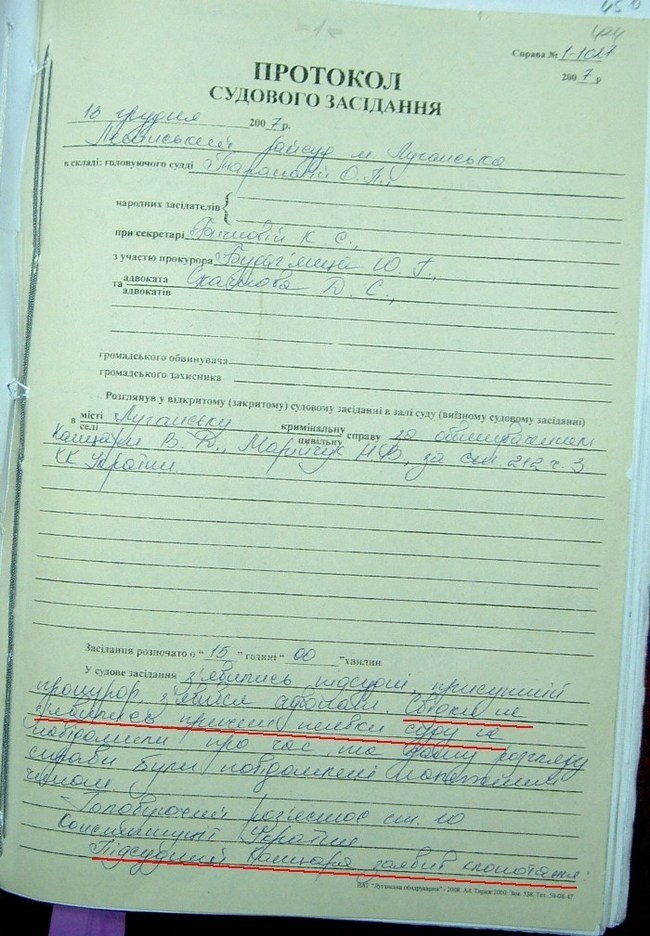 424
Справа № 1-1027
2007 р
ПРОТОКОЛ
СУДОВОГО ЗАСІДАННЯ
18 грудня 2007 р.
райсуд м Луганська
в складі: головуючого судді О.П.,
народних засідателів
при секретарі К. С.,
з участю прокурора Ю. Г.,
та адвоката Д. С.,
адвокатів
громадського обвинувача
громадського захисника
Розглянув у відкритому (закритому) судовому засіданні в залі суду (виїзному судовому засіданні)
в місті Луганську кримінальну справу за обвинуваченням
селі цивільну
В. В., Марійчук Н.В, за ст 212 ч. 3
КК України.
Засідання розпочато о “ 15 ” годині “ 00 ” хвилин
У судове засідання з'явились підсудні присутній
прокурор, з'явився адвокат. Свідки не
з'явились причини неявки суду не
повідомили про час та дату розгляду
справи були повідомлені належним
чином.
Головуючий роз'яснює ст. 10
Конституції України
Підсудний заявив клопотання:
ВКО "Луганська облдрукарня" - 2006. А4. Тираж 2000. Зам. 538. Тел. 59-08-47.